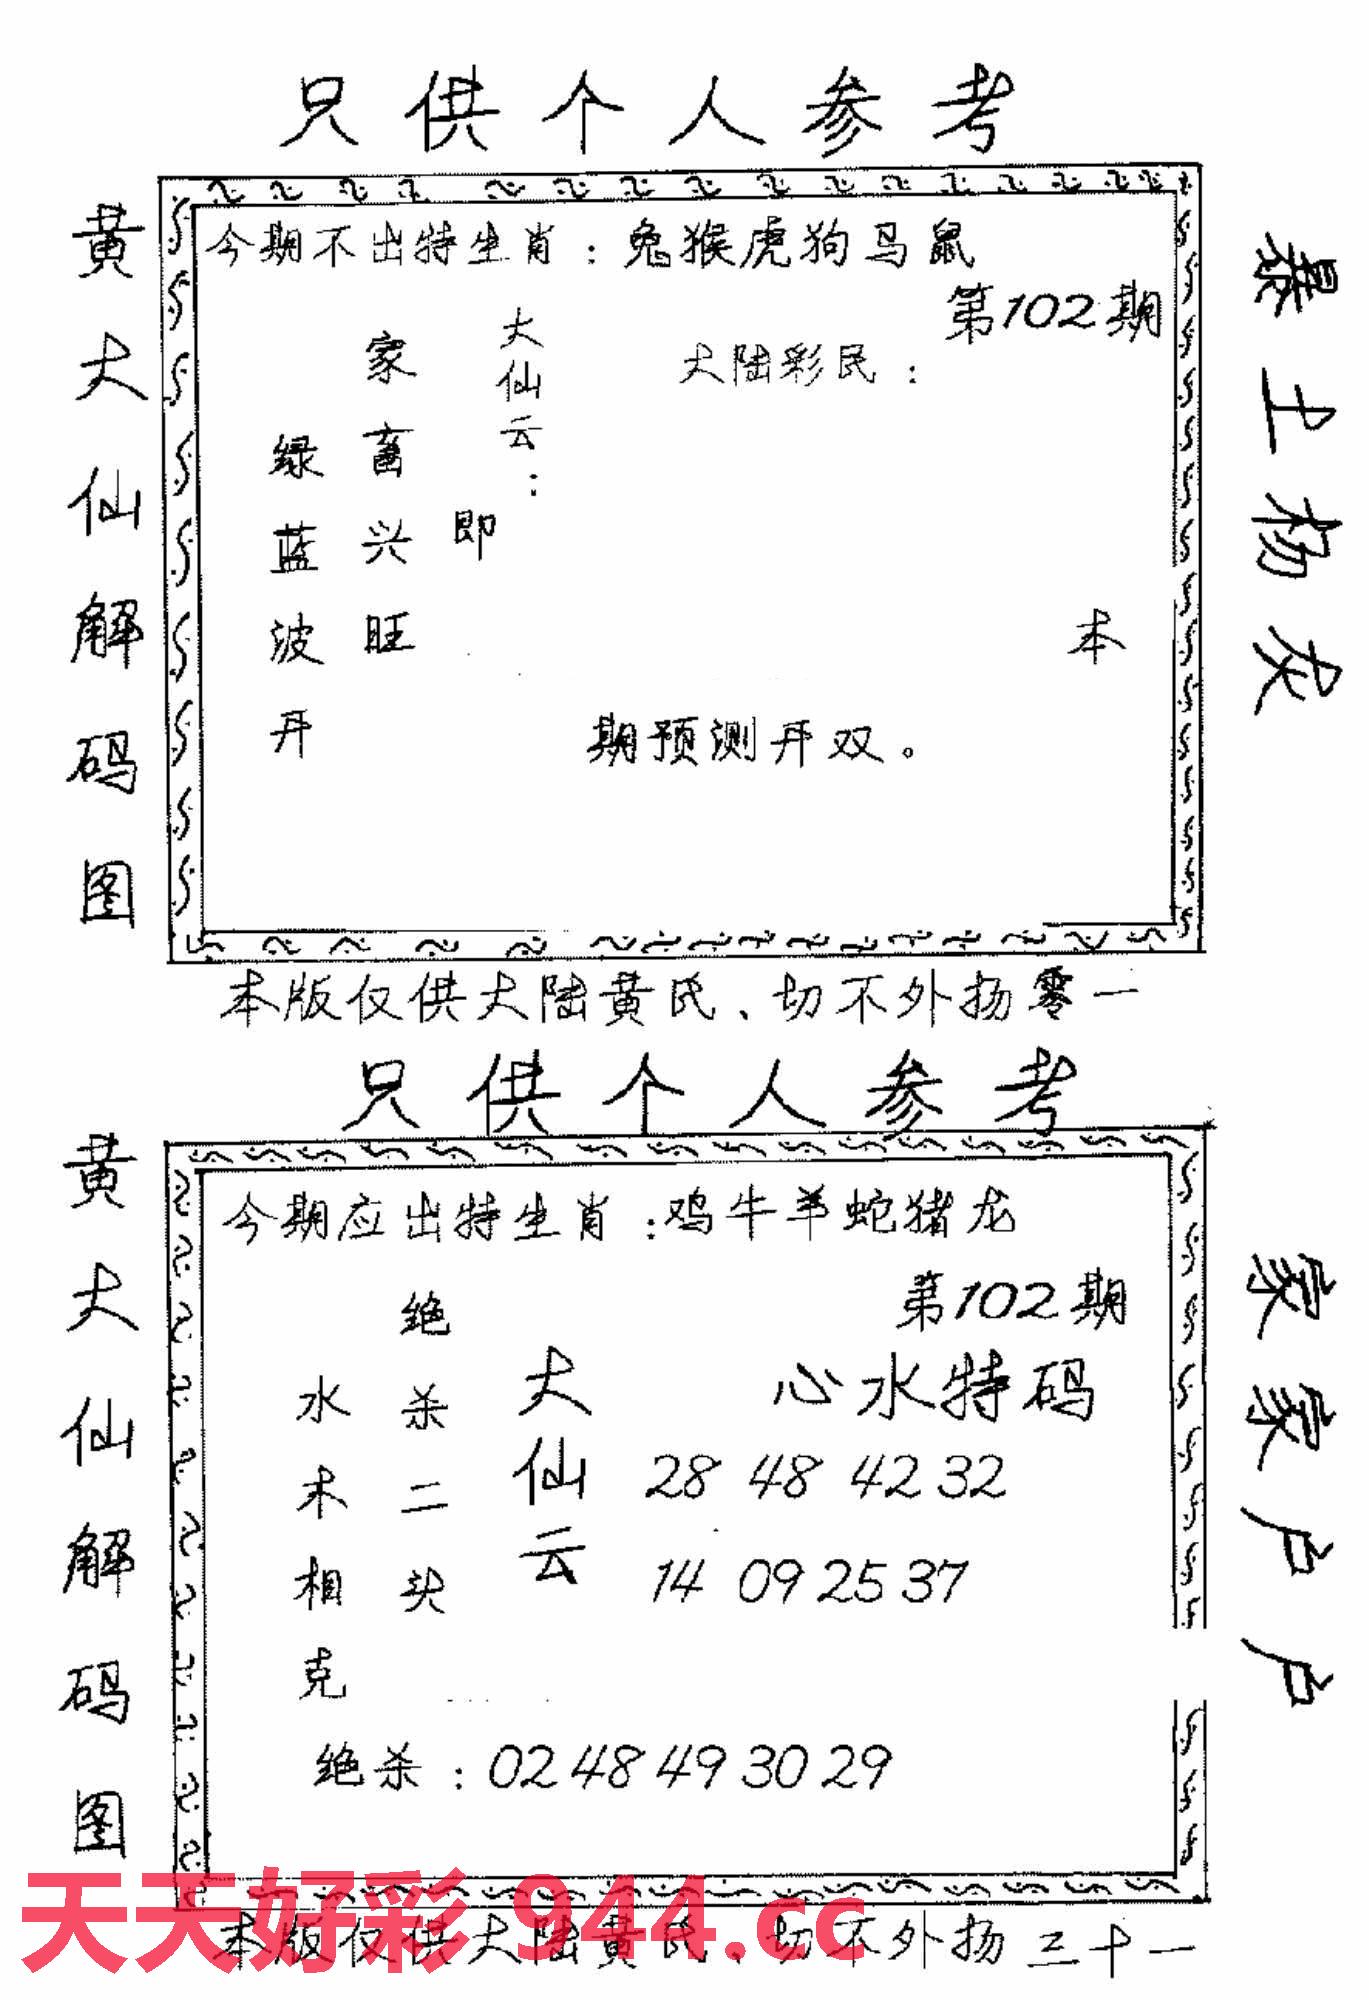 只供个人参考
黄大仙解码图
今期不出特生肖：兔猴虎狗马鼠
第102期
大陆彩民：
大仙云：
即
家畜兴旺
绿蓝波开
本
期预测开双。
暴土杨灰
本版仅供大陆黄氏、切不外扬零一
只供个人参考
黄大仙解码图
今期应出特生肖：鸡牛羊蛇猪龙
第102期
心水特码
28 48 42 32
14 09 25 37
大仙云
绝杀二头
水木相克
绝杀：02 48 49 30 29
家家户户
天天好彩 944.cc
本版仅供大陆黄氏、切不外扬三十一